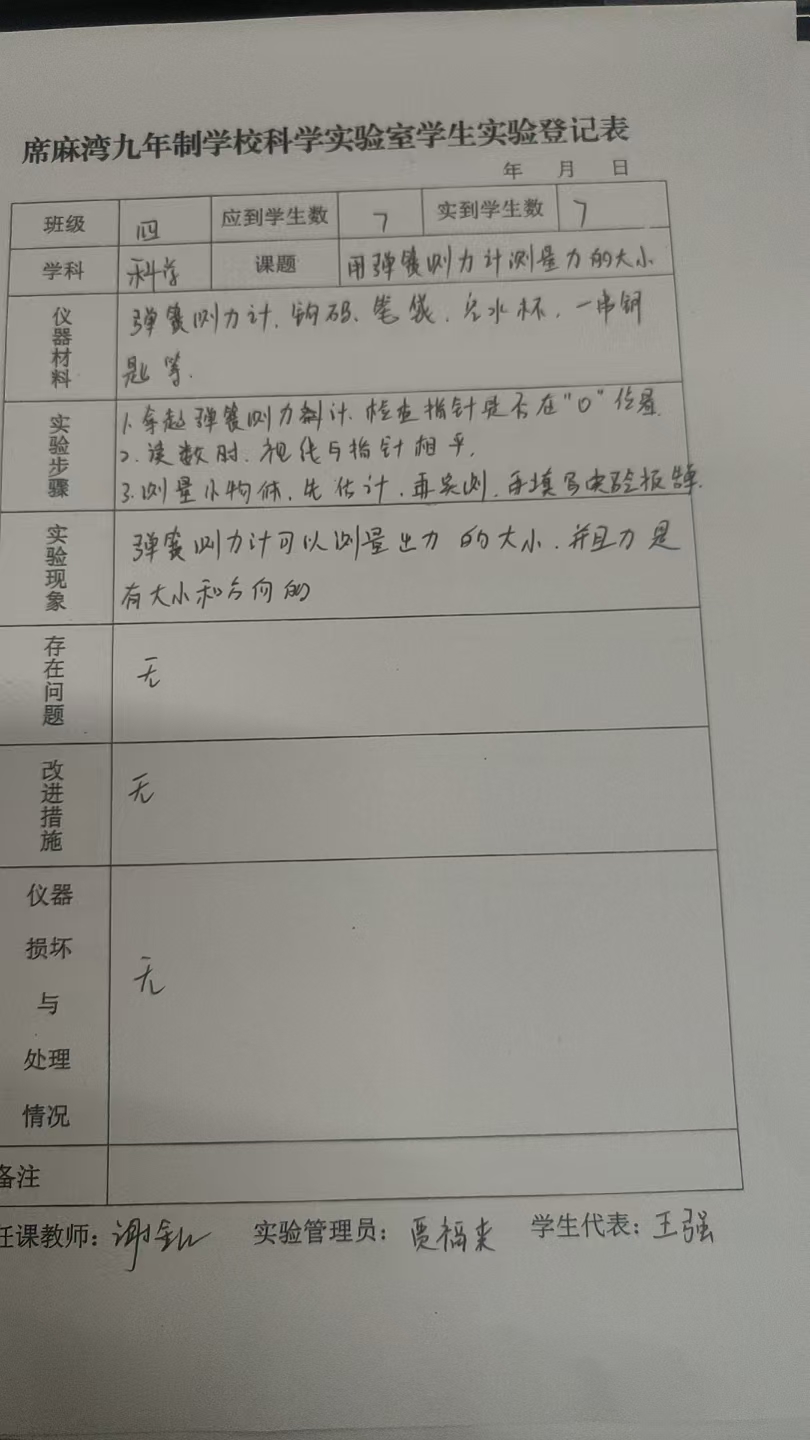 席麻湾九年制学校科学实验室学生实验登记表
年 月 日
班级 四 应到学生数 7 实到学生数 7
学科 科学 课题 用弹簧测力计测量力的大小
仪器材料 弹簧测力计、钩码、笔袋、空水杯、一串钥
匙等.
实验步骤 1.拿起弹簧测力计.检查指针是否在"0"位置.
2.读数时.视线与指针相平.
3.测量小物体,先估计,再实测,再填写实验报告单.
实验现象 弹簧测力计可以测量出力的大小.并且力是
有大小和方向的
存在问题 无
改进措施 无
仪器
损坏
与
处理
情况
无
备注
任课教师: 谢 实验管理员: 贾福来 学生代表: 王强